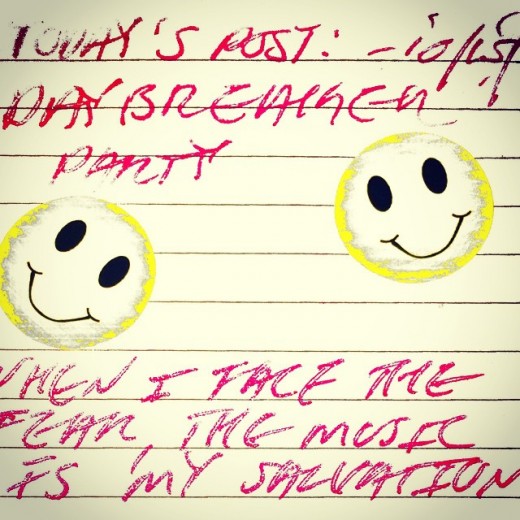 TODAY'S POST: - 10/15/
DAYBREAKER
PARTY
WHEN I FACE THE
FEAR, THE MUSIC
IS MY SALVATION